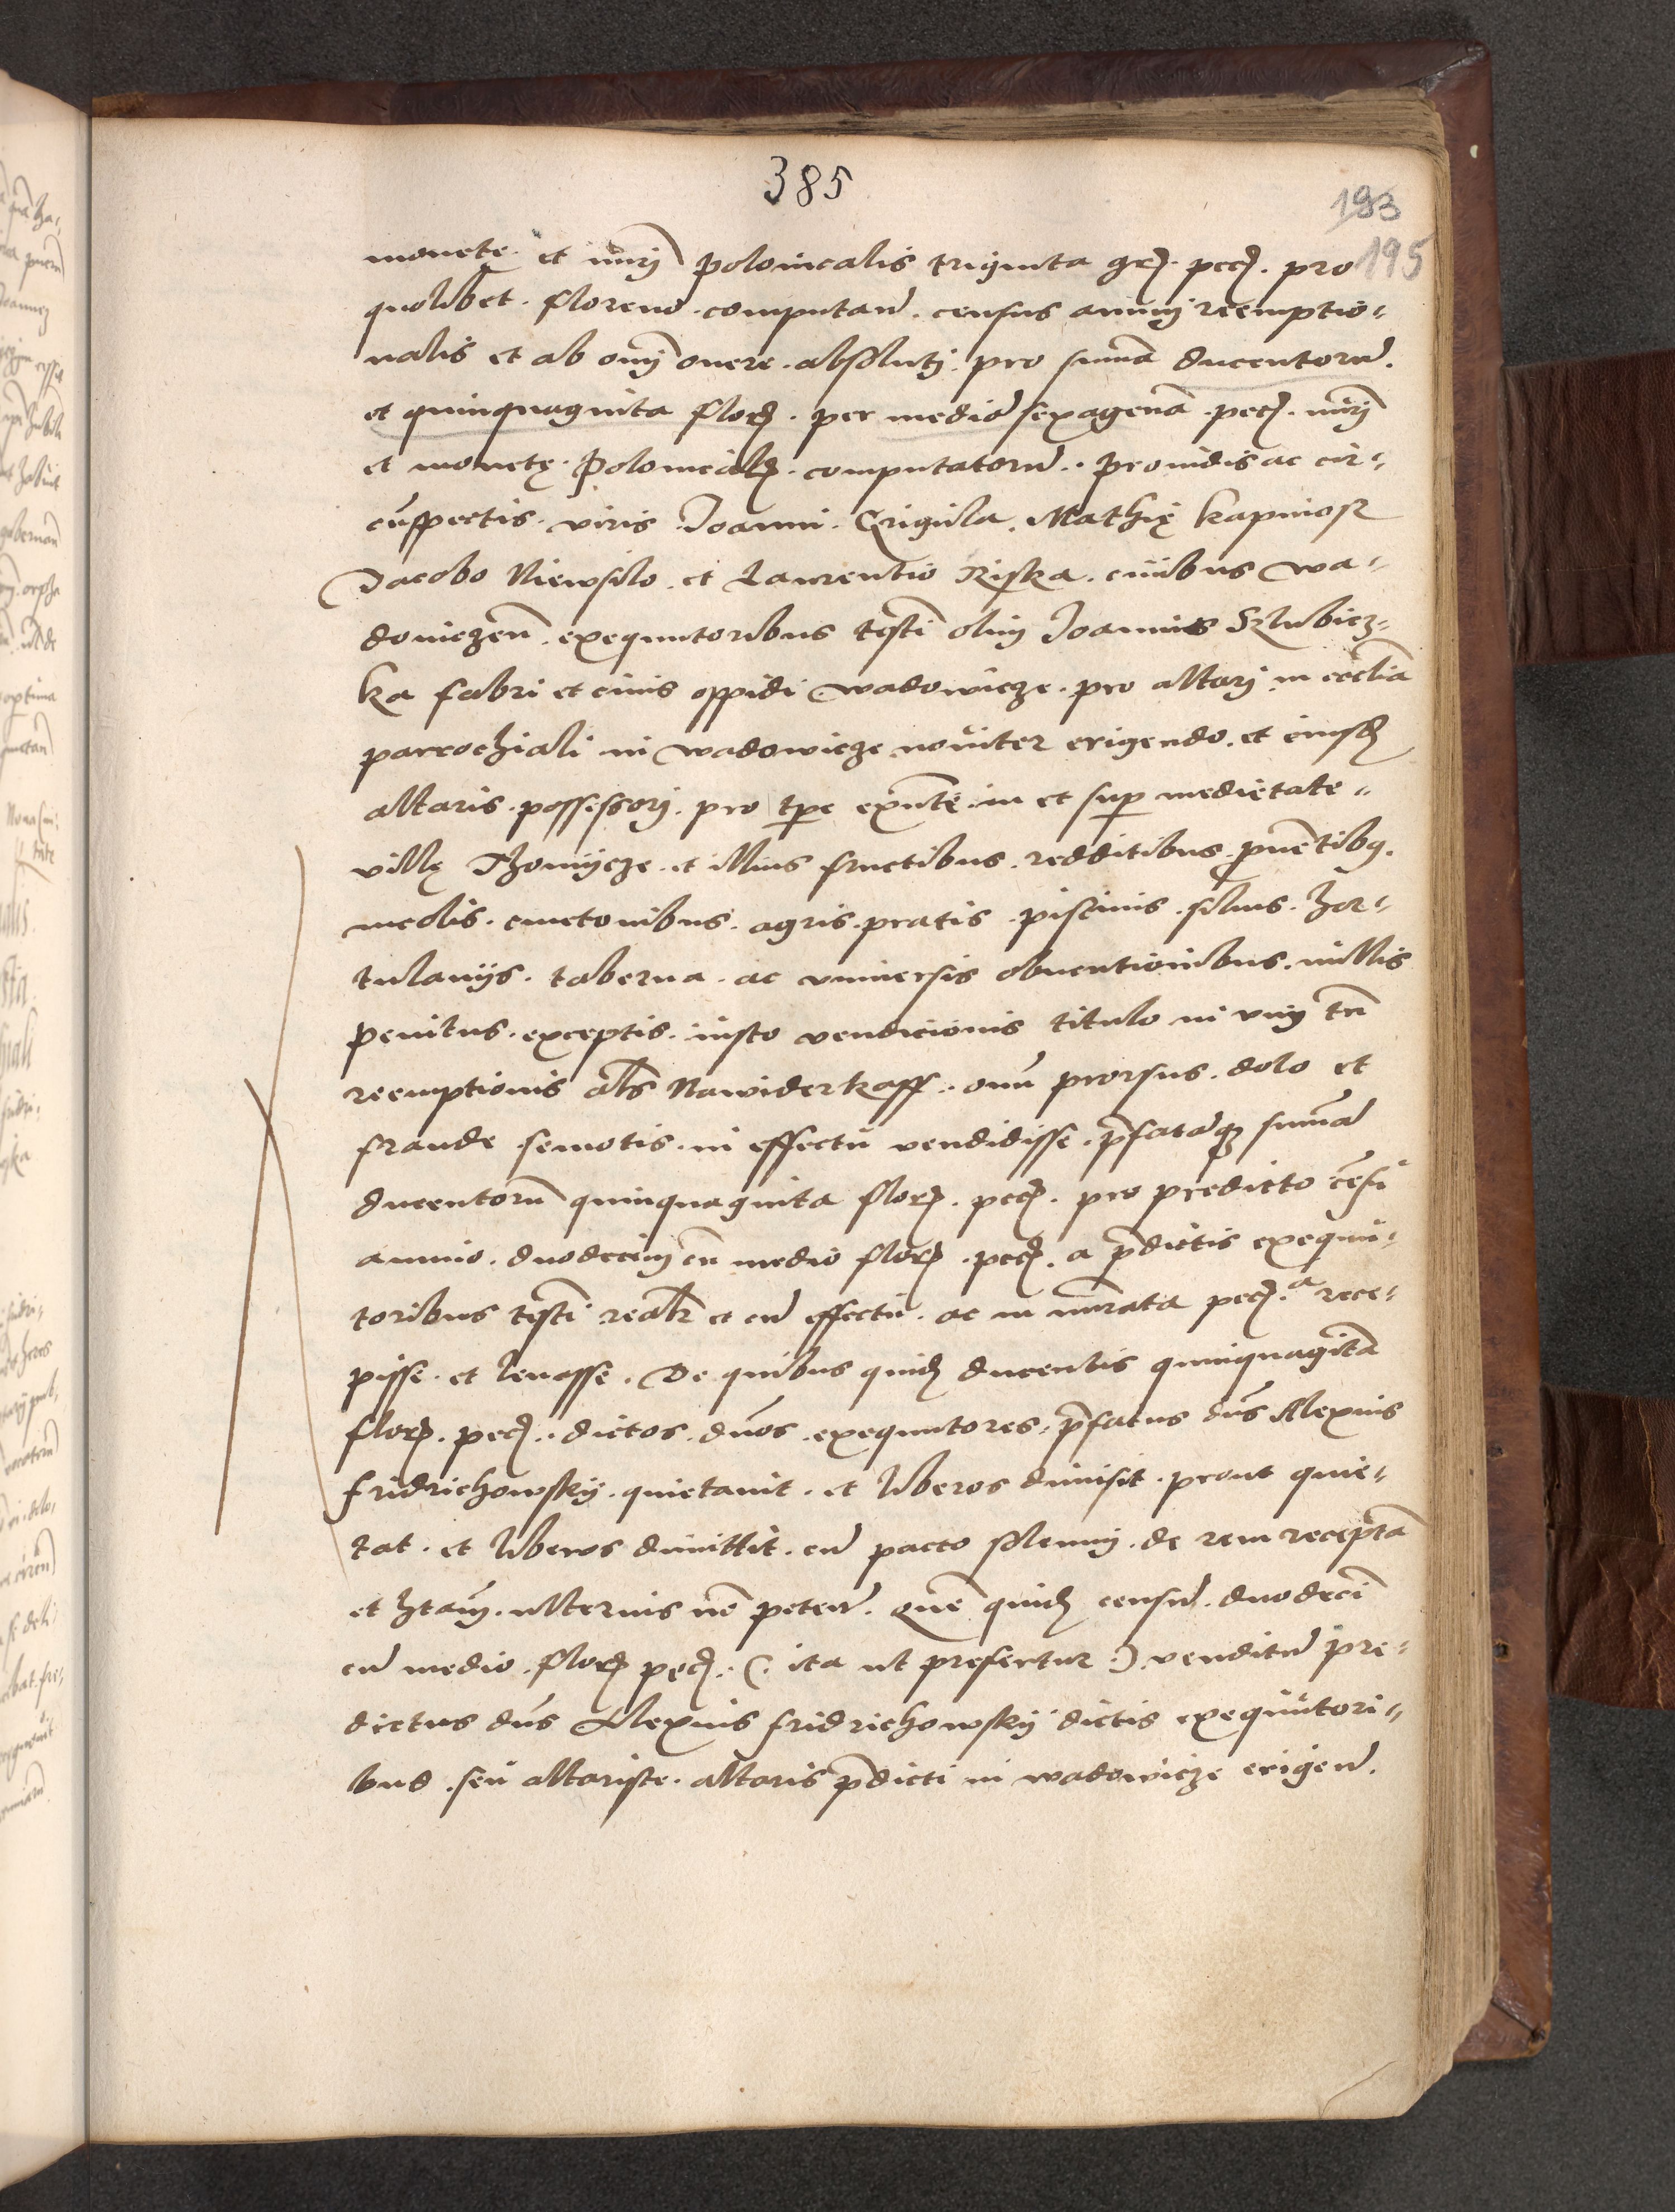 385
193
195
monetę et nūrj polonicalis triginta gr. pec. pro
quolibet floreno computand. census annuj reemptio-
nalis et ab omnj onere absolutj pro summa ducentorū
et quinquaginta flor. per mediā sexagenā pec. nūrj
et monetę Polonical. computatorū. Prouidis ac cir-
cūspectis viris Joanni Grigula, Mathię Kapniosz
Jacobo Niewsilo et Laurentio Riska ciuibus wa-
douiczen. exequutoribus testi olim Joannis Szlubicz-
ka fabri et ciuis oppidi wadowicze pro altarj in ecclia
parrochiali in wadowicze nouiter erigendo et eiusd
altaris possessorj pro tpe exnte in et sup medietate
villę Thomycze et illius fructibus redditibus puentibq
incolis cmetonibus agris pratis piscinis siluis hor-
tulanijs taberna ac vniuersis obuentionibus nullis
penitus exceptis iusto vendicionis titulo in vim tn
reemptionis als Nawiderkaff omi prorsus dolo et
fraude semotis in effectu vendidisse pfatāqz summā
ducentorū quinquaginta flor. pec. pro predicto cēsu
annuo duodecim cū medio flor. pec. a pdictis exequu-
toribus testi realr et cū effectu ac in nūrata pec.a rece-
pisse et leuasse. De quibus quid ducentis quinquagita
flor. pec. dictos dnos exequutores pfatus dns Alexius
fridrichowsky quietauit et liberos dimisit prout quie-
tat et liberos dimittit cū pacto solemnj de rem recepta
et hitam ulterius nō petend. Quē quid censū duodeci
cū medio flor. pec. (: ita ut prefertur :) venditū pre-
dictus dns Alexius fridrichowsky dictis exequutori-
bus seu altariste altaris pdicti in wadowicze erigend.